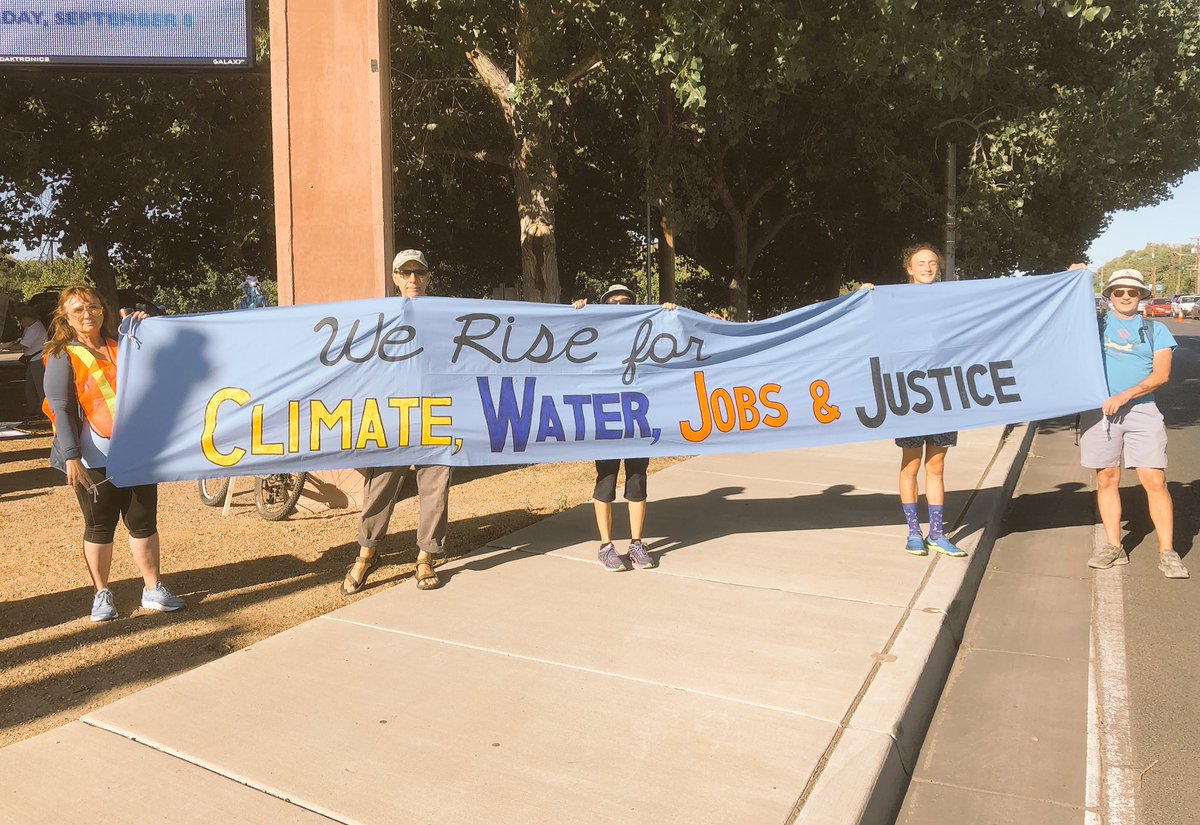 DAY, SEPTEMBER 8
DAKTRONICS
GALAXY
We Rise for
CLIMATE, WATER, JOBS & JUSTICE